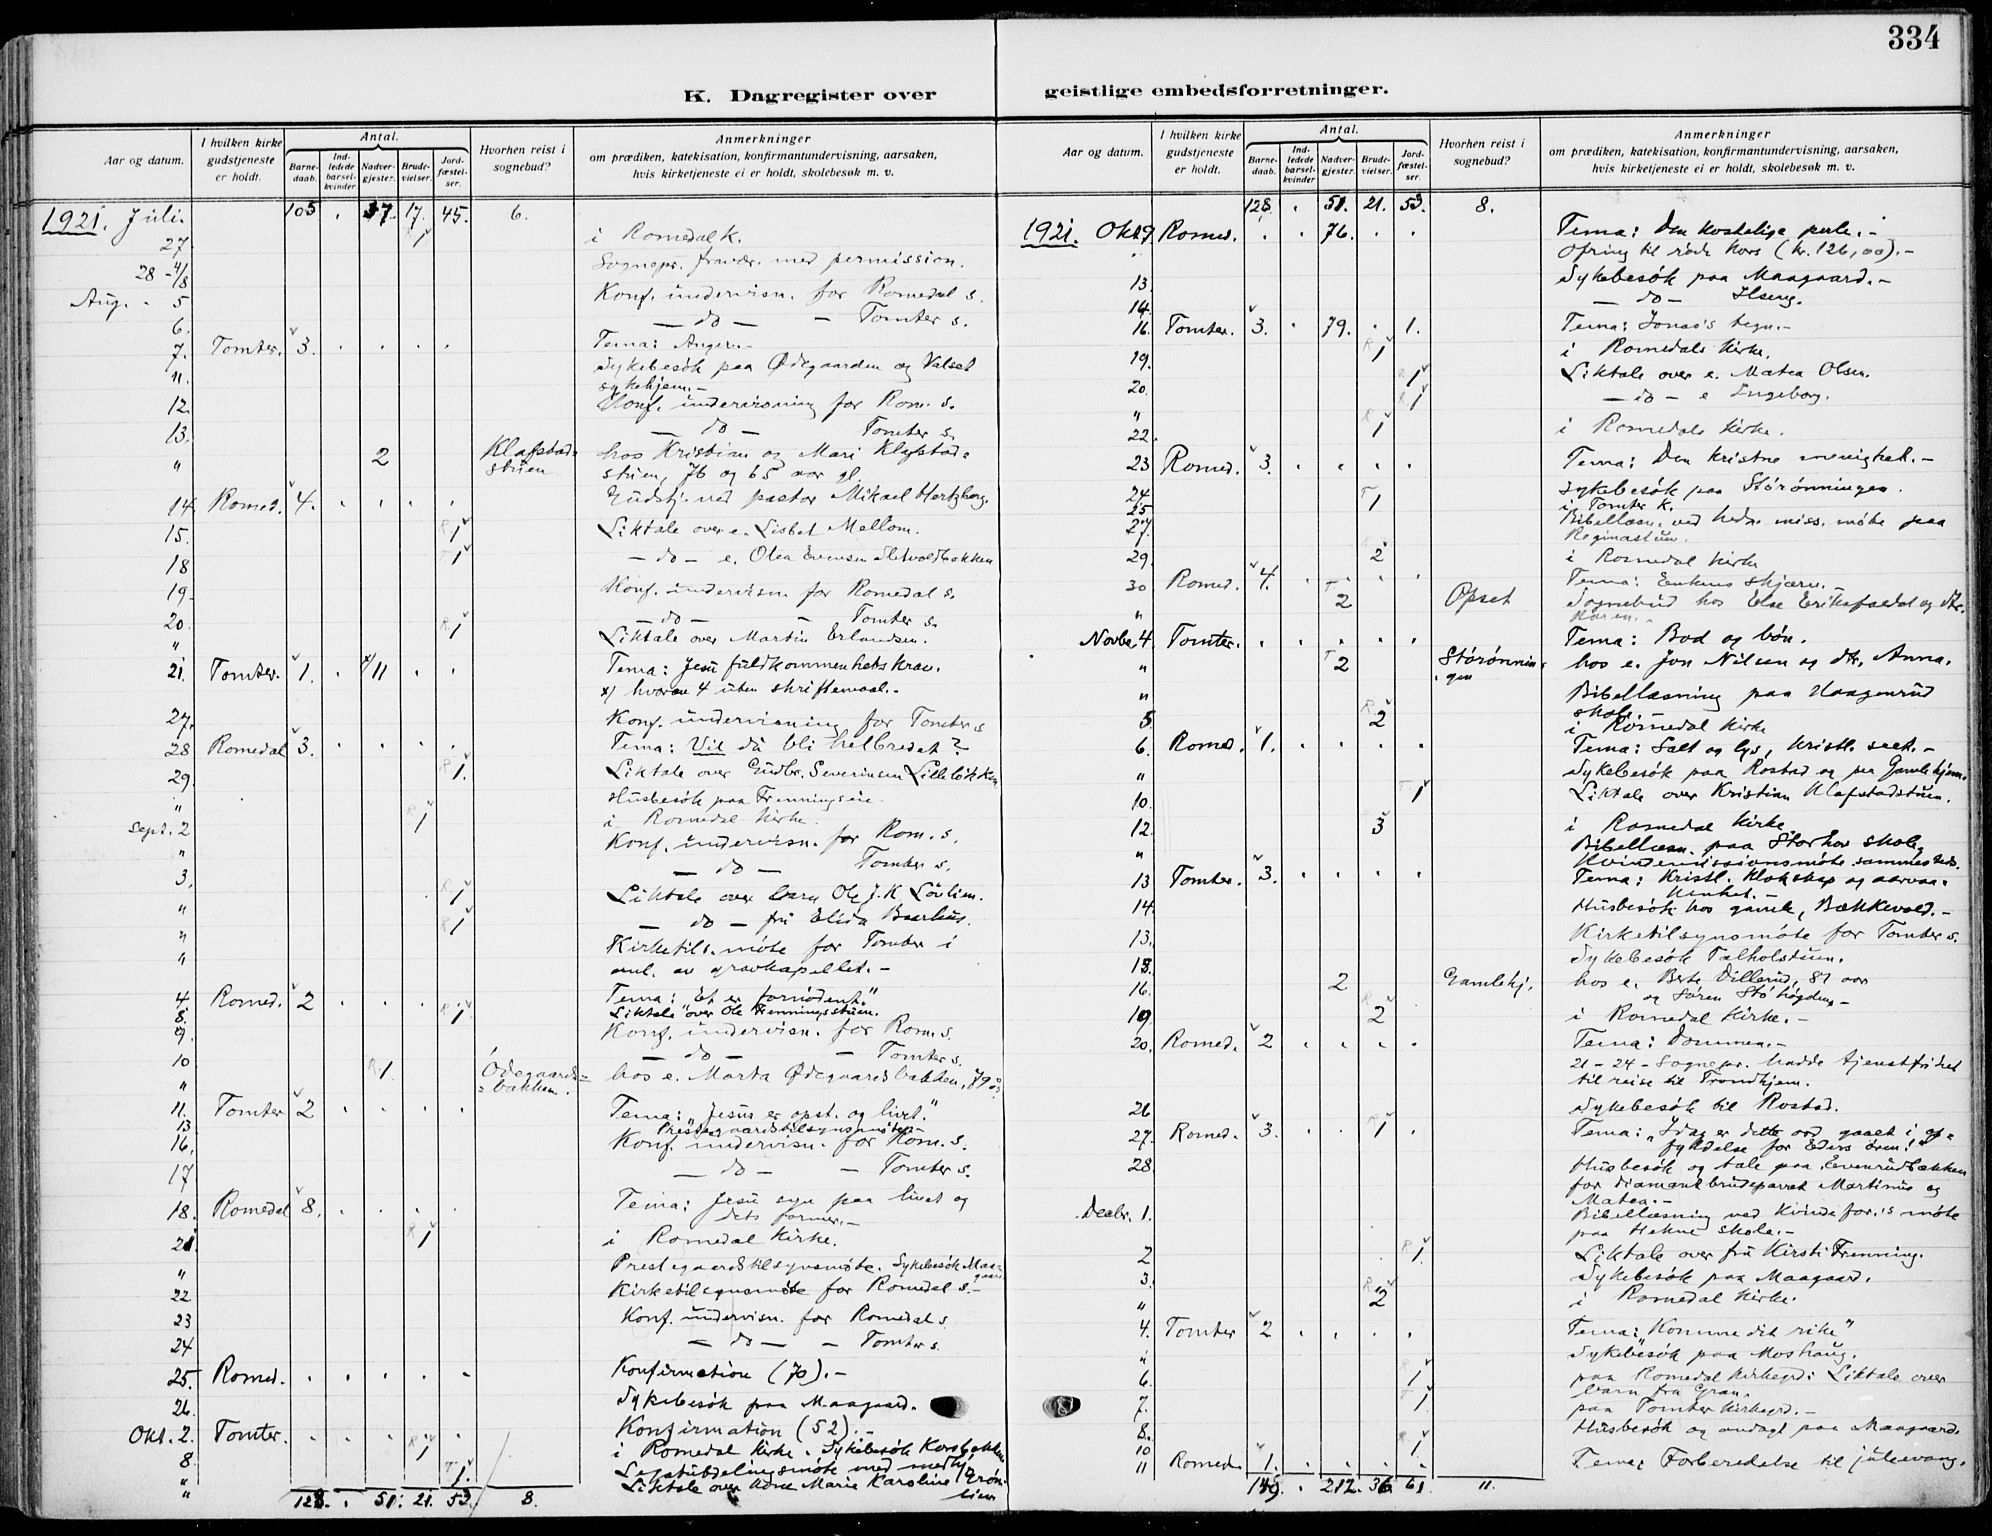 334
K. Dagregister over
Aar og datum.
I hvilken kirke gudstjeneste er holdt.
Antal.
Barne-daab.
Ind-ledede barsel-kvinder
Nadver-gjester.
Brude-vielser.
Jord-fæstel-ser.
Hvorhen reist i sognebud?
Anmerkninger
om prædiken, katekisation, konfirmantundervisning, aarsaken,
hvis kirketjeneste ei er holdt, skolebesøk m. v.
1921. Juli. 105 . 37. 17. 45. 6.
27 1 i Romedal k.
28 - 4/8 Sognepr. fravær. med permission.
Aug. - 5 Konf. undervisn. for Romedal s.
6. — do — - Tomter s.
7. Tomter. 3. . . . . Tema: Anger.-
11. Sykebesøk paa Ødegaarden og Valset
sykehjem.-
12. Konf. undervisning for Rom. s.
13. — do — Tomter s.
" 2 Klafstad-stuen hos Kristian og Mari Klafstad-
stuen, 76 og 65 aar gl.
14. Romed. 4. . . . . Gudstj. ved pastor Mikael Hertzberg.
15. R 1 Liktale over e. Lisbet Mellom.
18 T 1 — do — e. Olea Evensen
19. Konf. undervisn. for Romedal s.
20. — do — - Tomter s.
" R 1 Liktale over Martin Erlandsen.
21. Tomter. 1. . x/11 . . Tema: Jesu fuldkommenhets krav.
x) hvorav 4 uten skriftemaal.-
27. Konf. undervisning for Tomter s
28 Romedal 3. . . . . Tema: Vil du bli helbredet?
29. R 1. Liktale over Gudbr. Severinsen Lillebækken
" Husbesøk paa Frenningseie.
Sept. 2 1 i Romedal kirke.
" Konf. undervisn. for Rom. s.
3. — do — Tomter s.
" R 1 Liktale over barn Ole J. K. Lövlien.
" R 1 — do — fru Elida Baarhus.
" Kirketils. møte for Tomter i
anl. av gravkapellet.-
4. Romed. 2 . . . . Tema: "Et er fornødent."
8. R 1 Liktale over Ole Frenningsstuen.
9. Konf. undervisn. for Rom. s.
10 — do — - Tomter s.
" R 1. Ödegaards-bakken. hos e. Marta Ødegaardsbakken, 79
11. Tomter 2 . . . . Tema: "Jesus er opst. og livet."
13 Prestegaardstilsynsmöte-
16. Konf. undervisn. for Rom. s.
17 — do — - Tomter s.
18. Romedal 8. . . . . Tema: Jesu syn paa livet og
dets former.-
21 R 1 i Romedal kirke.
" Prestegaardstilsynsmøte. Sykebesøk Maa-
gaard
22 Kirketilsynsmøte for Romedal s.-
23 Konf. undervisn. for Romedal s.
24 — do — - Tomter s.
25. Romed. . . . . . Konfirmation (70).-
26. Sykebesøk paa Maagaard.
Okt. 2. Tomter. . . . . . Konfirmation (52).-
8. R 1 i Romedal kirke. Sykebesøk
Legatutdelingsmöte med
" T 1. Liktale over Marie Karoline Grön-
lien
128. . 51. 21. 53. 8.
geistlige embedsforretninger.
Aar og datum.
I hvilken kirke gudstjeneste er holdt.
Antal.
Barne-daab.
Ind-ledede barsel-kvinder
Nadver-gjester.
Brude-vielser.
Jord-fæstel-ser.
Hvorhen reist i sognebud?
Anmerkninger
om prædiken, katekisation, konfirmantundervisning, aarsaken,
hvis kirketjeneste ei er holdt, skolebesøk m. v.
128. . 51. 21. 53. 8.
1921. Okt. 9. Romed. . . 76. . . Tema: Den kostelige perle.-
Ofring til røde kors (kr. 126,00).-
13. Sykebesøk paa Maagaard.-
14. — do — Ilseng.
16. Tomter. 3. . 79. . 1. Tema: Jonas's tegn.-
19. R 1 i Romedals kirke.
20. R 1 Liktale over e. Matea Olsen.
" R 1 — do — e Ingeborg.
22. R 1 i Romedals kirke.
23 Romed. 3. . . . . Tema: Den kristne menighet.-
24 Sykebesøk paa Störönningen.
25 T 1 i Tomter k.
27. Bibellæsn. ved hedn. miss. møte paa
Reginastuen.
29. 2 i Romedal kirke
30 Romed. 4. . . . . Tema: Enkens skjærv.-
" T 2 Opset Sognebud hos Else og dtr.
Karen.
Novbr. 4. Tomter. . . . . . Tema: Bod og bön.
" T 2 Störönnin-gen hos e. Jon Nilsen og dtr. Anna.
" Bibellæsning paa Haagenrud
skole.-
5. R 2 i Romedal kirke
6. Romed. 1. . . . . Tema: Salt og lys, kristl. selt.-
" Sykebesøk paa Rostad og paa Gamlehjem.
10. T 1 Liktale over Kristian Klafstadstuen.
12. 3 i Romedal kirke
" Bibellæsn. paa Storhov skole,
Kvindemissionsmöte sammesteds.
13 Tomter. 3. . . . . Tema: Kristl. klokskap og aarvaa-
kenhet.-
14. Husbesök hos gamle, Bækkevold.-
13. Kirketilsynsmöte for Tomter s.
15. Sykebesøk Talholstuen.
16. 2 Gamlehj. hos e. Berte Dillerud, 81 aar
og Søren
19 R 2 i Romedal kirke.-
20. Romed. 2 . . . . Tema: Dommen.-
21 - 24 - Sognepr. hadde tjenstfrihet
til reise til Trondhjem.
26 Sykebesøk til Rostad.
27. Romed. 3. . . R 1 . Tema: "Idag er dette ord gaaet i op-
fyldelse for Eders ören!"
28 Husbesøk og tale paa Evenrudbækken
for diamantbrudeparret Martinus og
Matea.-
Decbr. 1. Bibellæsning ved Kvindefor.'s möte
paa Hekne skole.-
2 R 1 Liktale over fru Kirsti Frenning.
3. Sykebesøk paa Maagaard.
" R 2 i Romedal kirke.
4. Tomter 2 . . . . Tema: "Komme dit rike"
" Sykebesøk paa Moshaug.
6. R 1 paa Romedal kirkegrd: Liktale over
barn fra Gran.
7. T 1 paa Tomter kirkegrd.-
8. Husbesøk og andagt paa Maagaard.
10 R 1
11 Romed. 1. . . . . Tema: Forberedelse til juleevang.
149. . 212. 36. 61. 11.